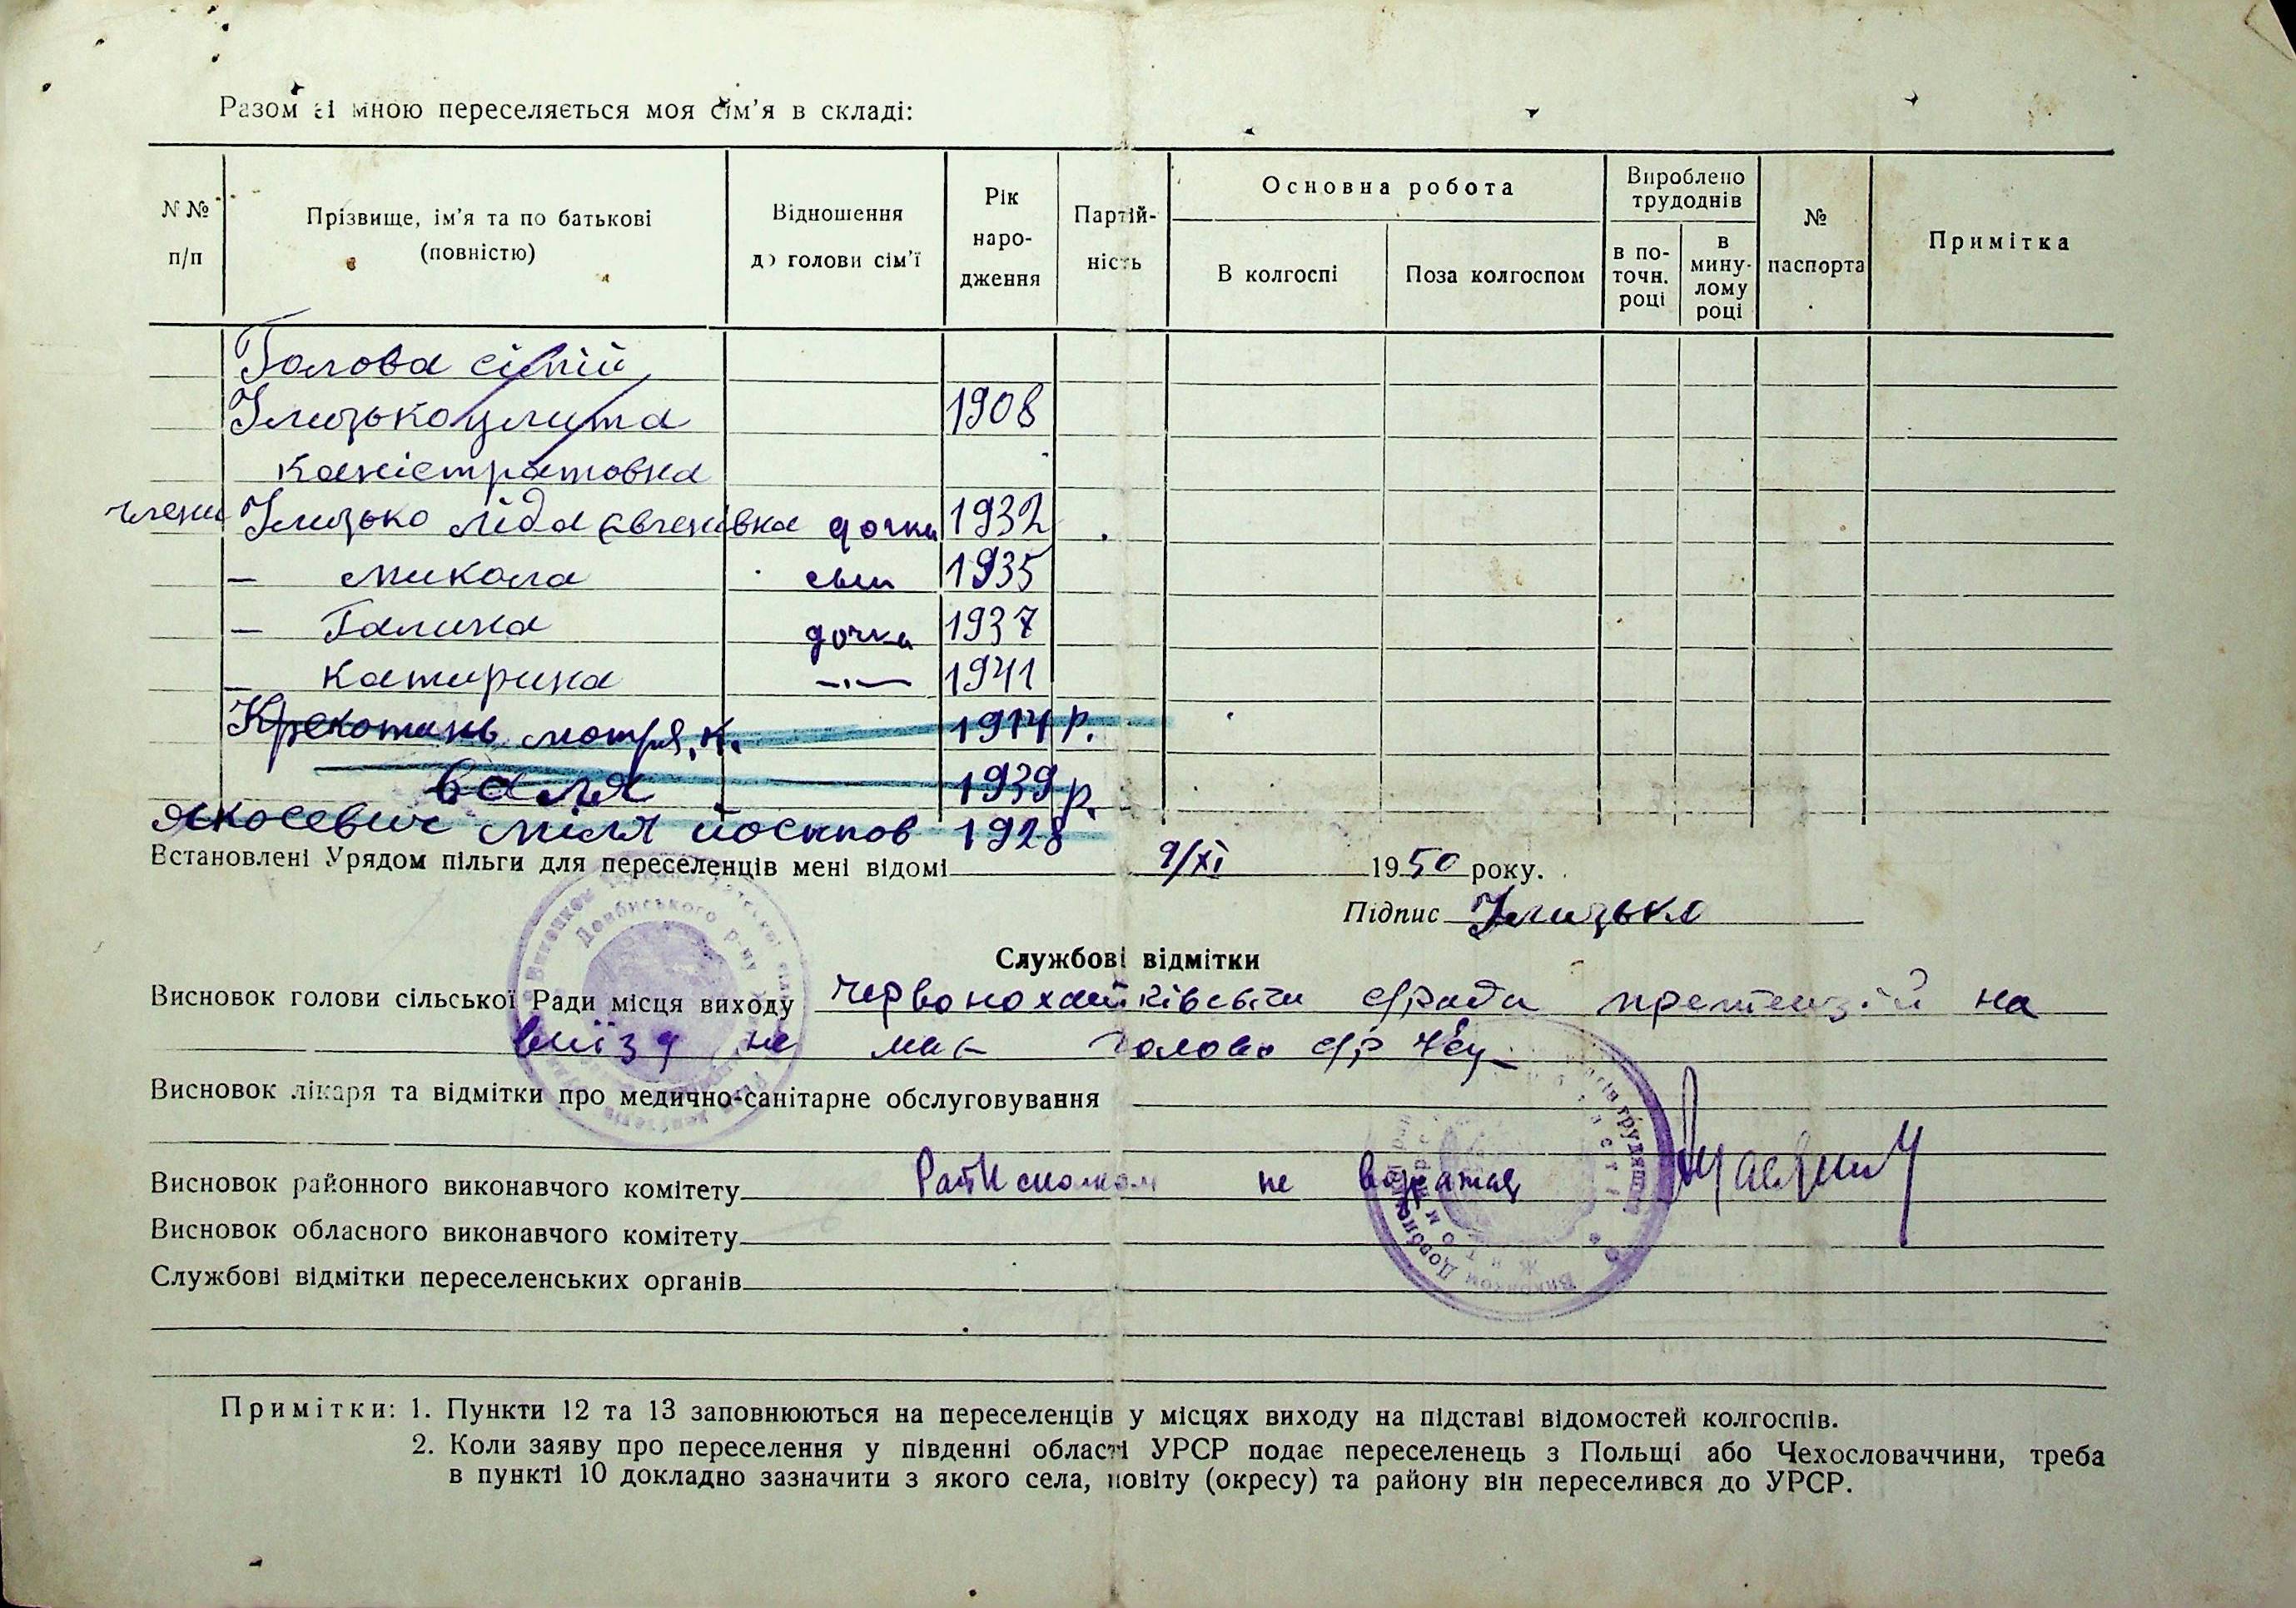 Разом зі мною переселяється моя сім'я в складі:
N №
п/п
Прізвище, ім'я та по батькові
(повністю)
Відношення
до голови сім'ї
Рік
наро-
дження
Партій-
ність
Основна робота
В колгоспі
Поза колгоспом
Вироблено
трудоднів
в по-
точн.
році
в
мину-
лому
році
№
паспорта
Примітка
Голова сімій
1908
каністратовна
члени Ілицько Ліда Євгенівна дочка 1932
— Микола син 1935
— Галина дочка 1937
— Катирина —·— 1941
Крекотень Мотря. К. 1914 р.
Валя 1939 р.
Якосевич Міля Йосипов 1928
Встановлені Урядом пільги для переселенців мені відомі 9/XI 1950 року.
Підпис Ілицько
Службові відмітки
Висновок голови сільської Ради місця виходу с/рада претензій на
виїзд не має Голова с/р
Висновок лікаря та відмітки про медично-санітарне обслуговування
Висновок районного виконавчого комітету не
Висновок обласного виконавчого комітету
Службові відмітки переселенських органів
Примітки: 1. Пункти 12 та 13 заповнюються на переселенців у місцях виходу на підставі відомостей колгоспів.
2. Коли заяву про переселення у південні області УРСР подає переселенець з Польщі або Чехословаччини, треба
в пункті 10 докладно зазначити з якого села, повіту (окресу) та району він переселився до УРСР.